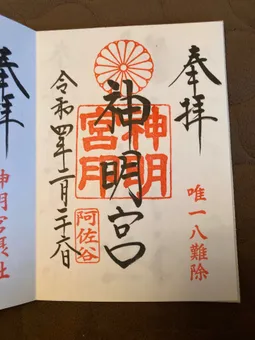 奉拝
唯一八難除
神明宮
神明宮印
阿佐谷
令和四年二月二十六日
奉拝
神明宮摂社